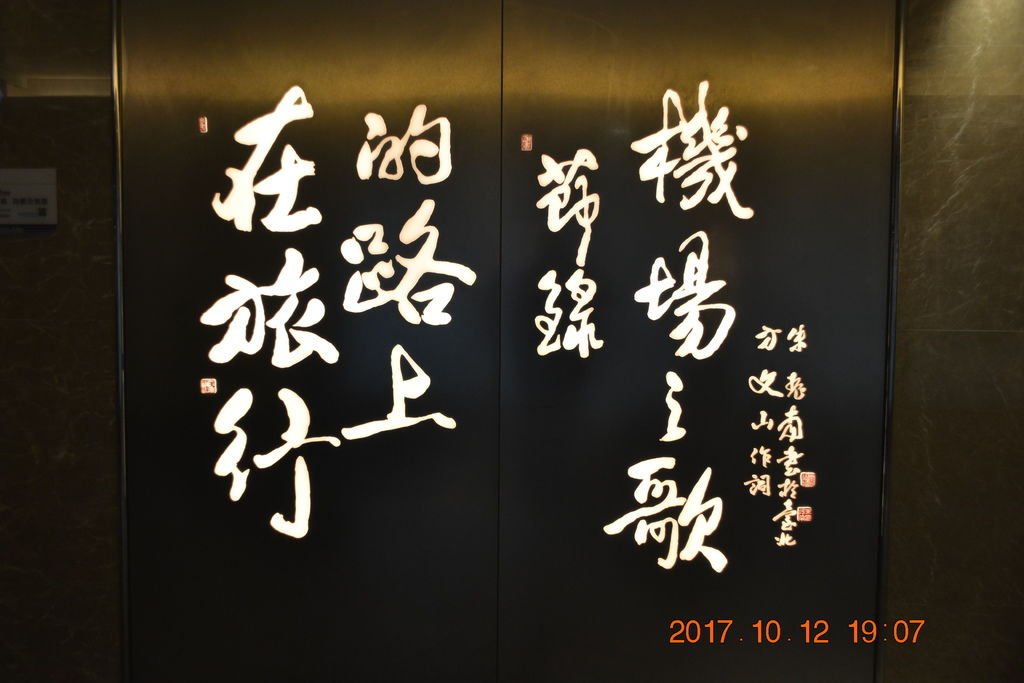 在旅行
的路上
節錄
機場之歌
方文山作詞
朱振南書於臺北
2017.10.12 19:07